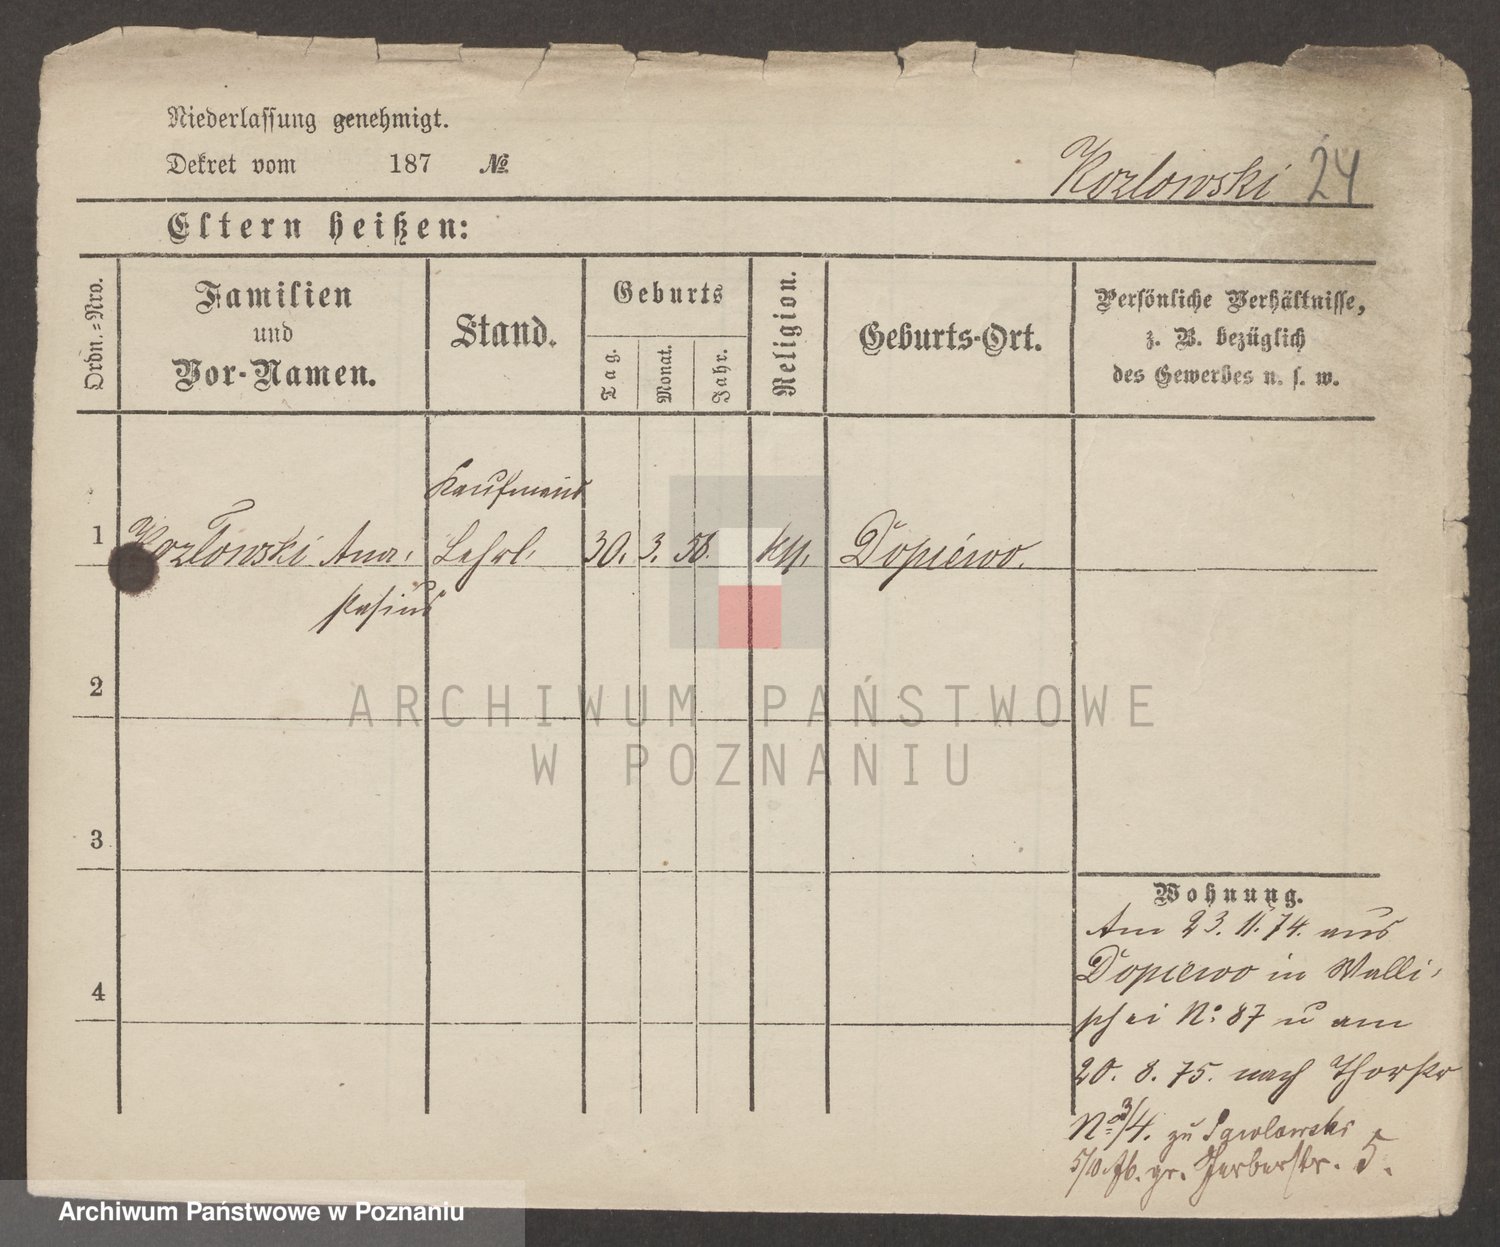 Niederlassung genehmigt.
Dekret vom 187 №
Kozlowski 24
Eltern heißen:
Ordn.=Nro.
Familien
und
Vor-Namen.
Stand.
Geburts
Tag.
Monat.
Jahr.
Religion.
Geburts-Ort.
Persönliche Verhältnisse,
z. B. bezüglich
des Gewerbes u. s. w.
Kaufmanns
1 Kozłowski Ana- Lehrl. 30. 3. 58. kth. Dopiewo.
stasius
2
3
4
Wohnung.
Am 23. 11. 74. aus
Dopiewo in Walli-
schei No. 87 u am
20. 8. 75. nach Thorstr
No. 3/4. zu Pawlowski
5/10. 76. gr. Gerberstr. 5.
ARCHIWUM PAŃSTWOWE
W POZNANIU
Archiwum Państwowe w Poznaniu